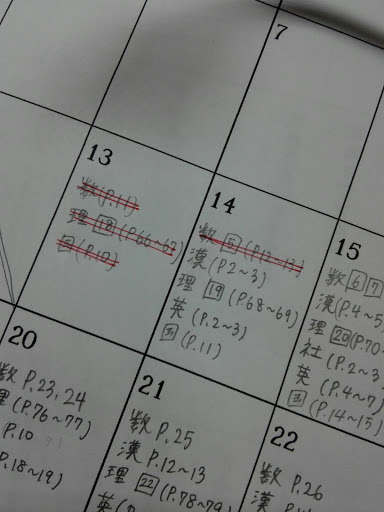 7
13
数(P.11)
理 18 (P.66~67)
国(P.10)
14
数 5 (P.12~13)
漢(P.2~3)
理 19 (P.68~69)
英(P.2~3)
国(P.11)
15
数 6 7
漢(P.4~5
理 20 (P.70~
社(P.2~3
英(P.4~7)
国(P.14~15)
20
数 P.23, 24
理(P.76~77)
P.10
P.18~19)
21
数 P.25
漢 P.12~13
理 22 (P.78~79)
英(P
22
数 P.26
漢